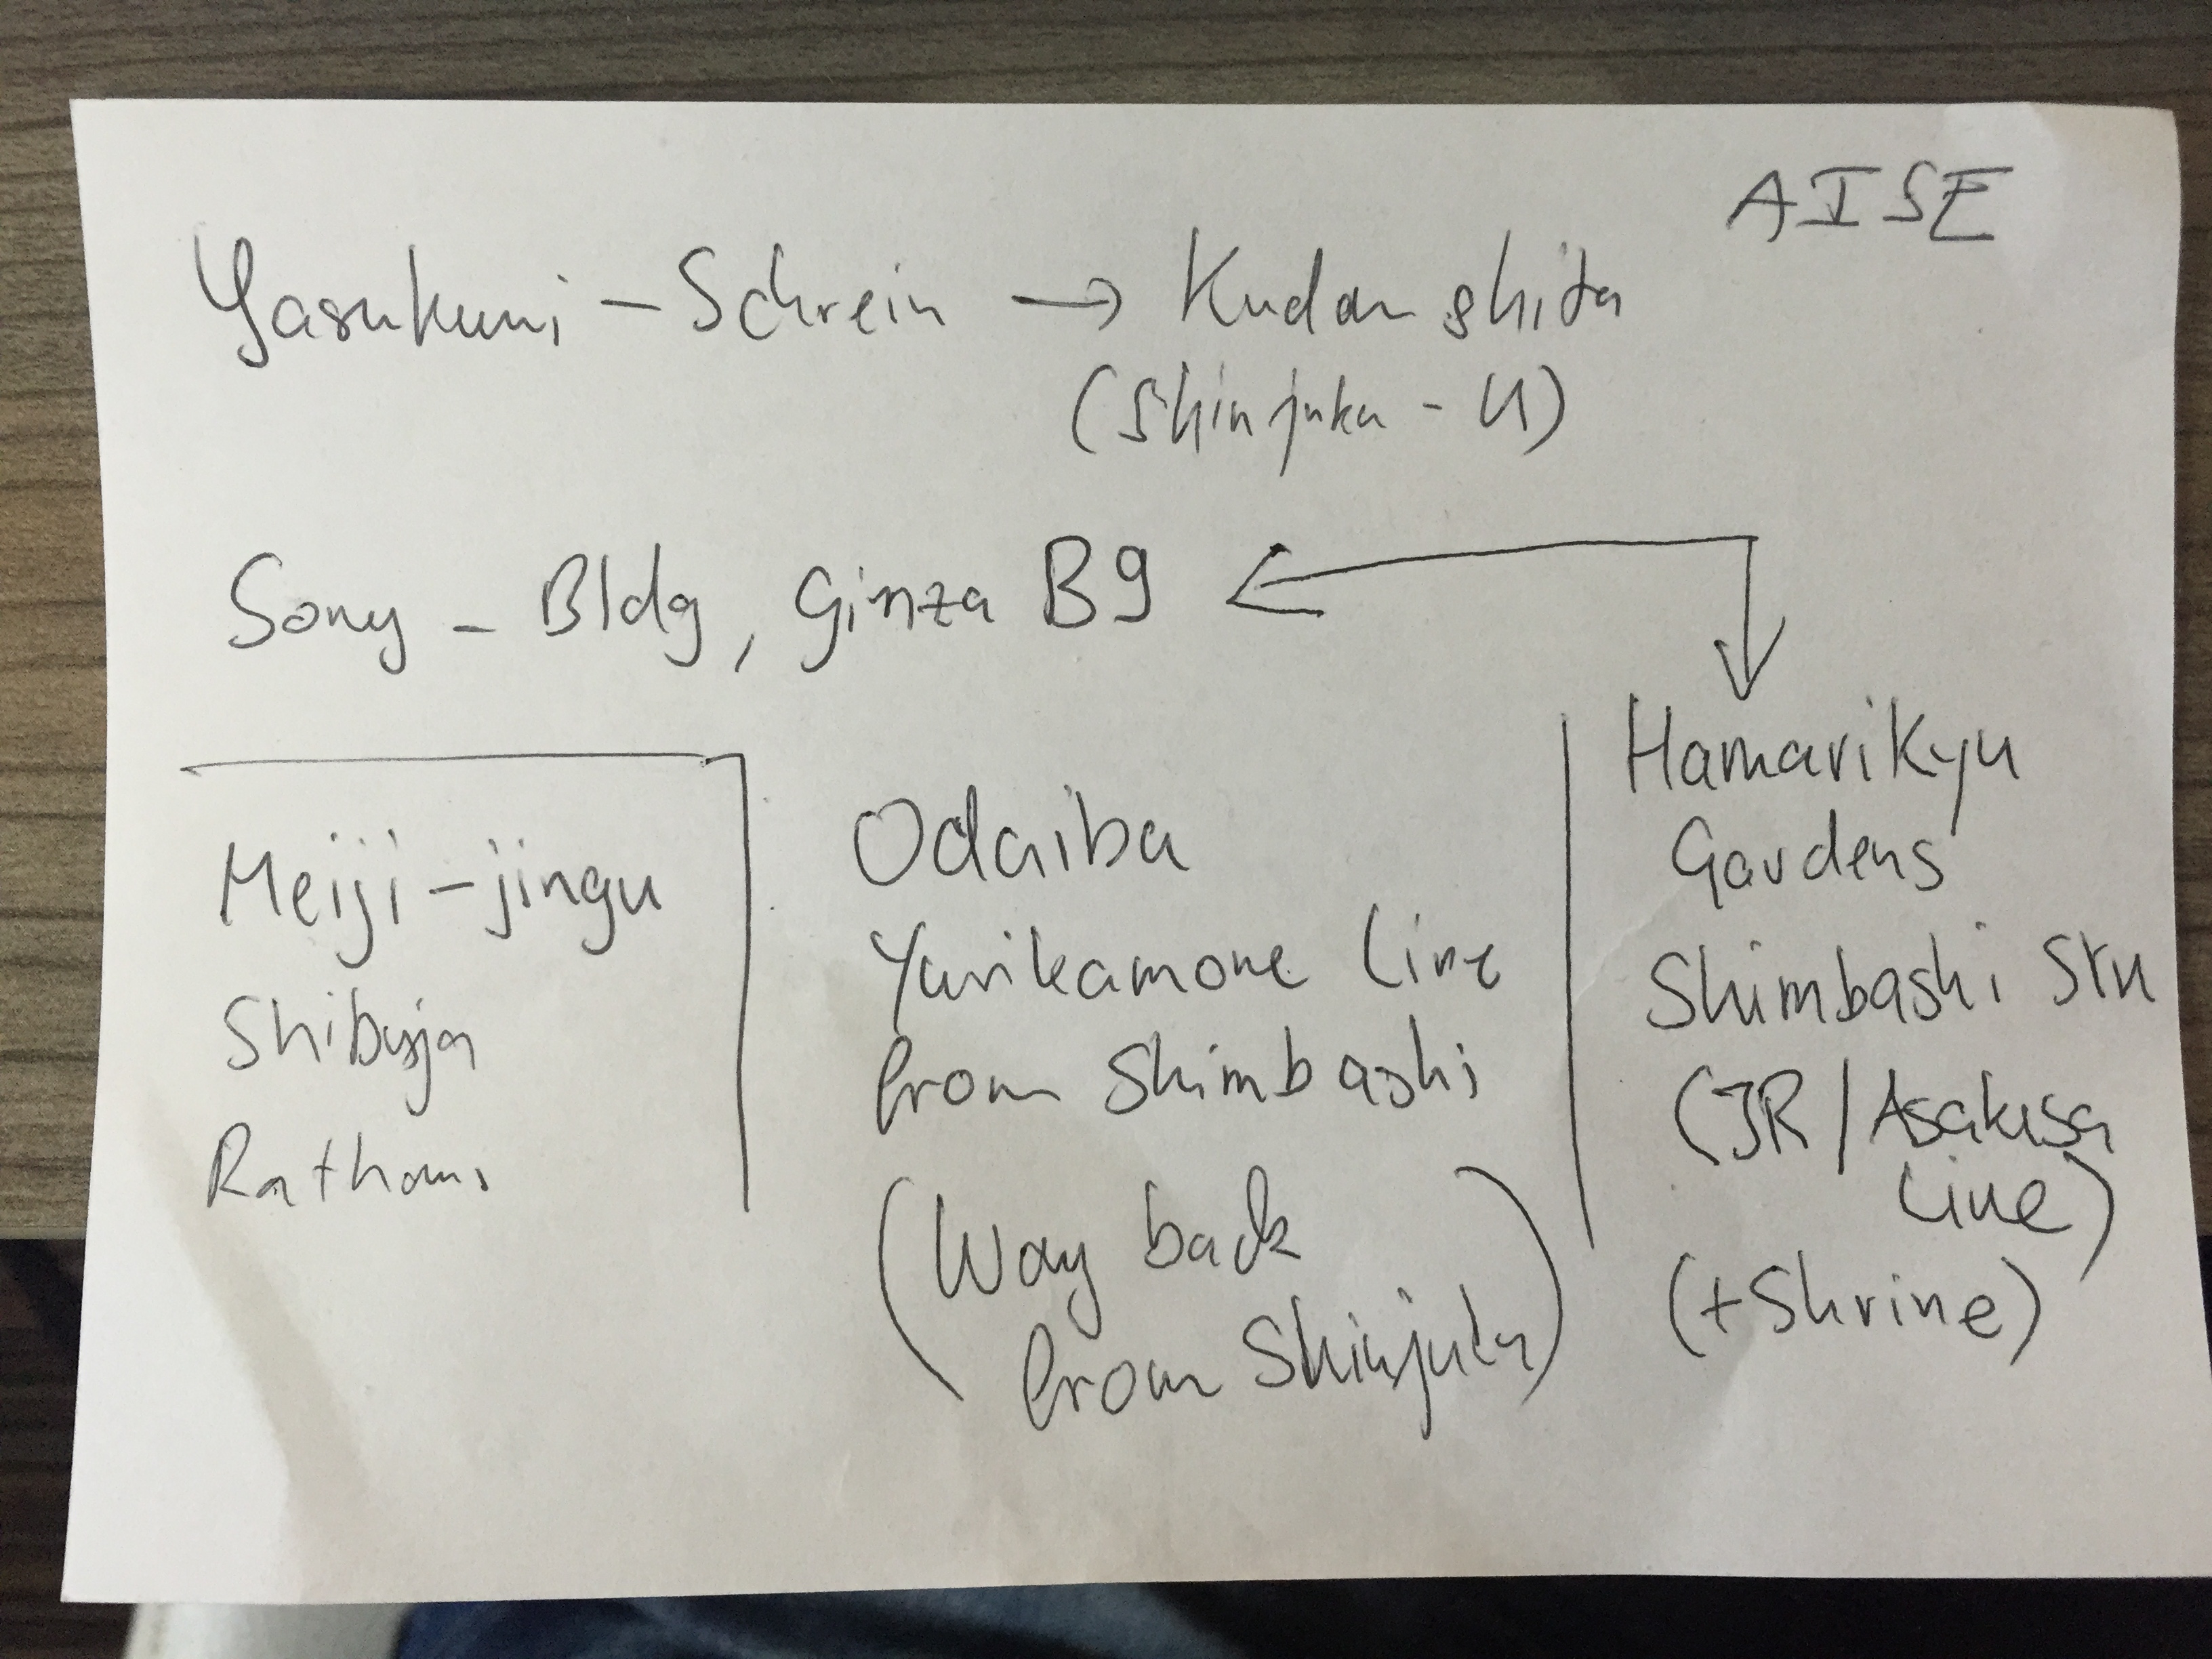 AISE
Yasukuni - Schrein → Kudanshita
(Shinjuku - U)
Sony - Bldg, Ginza B9
Meiji-jingu
Shibuja
Rathaus
Odaiba
Yurikamone Line
from Shimbashi
(Way back
from Shinjuku)
Hamarikyu
Gardens
Shimbashi Stn
(JR / Asakusa
Line)
(+Shrine)